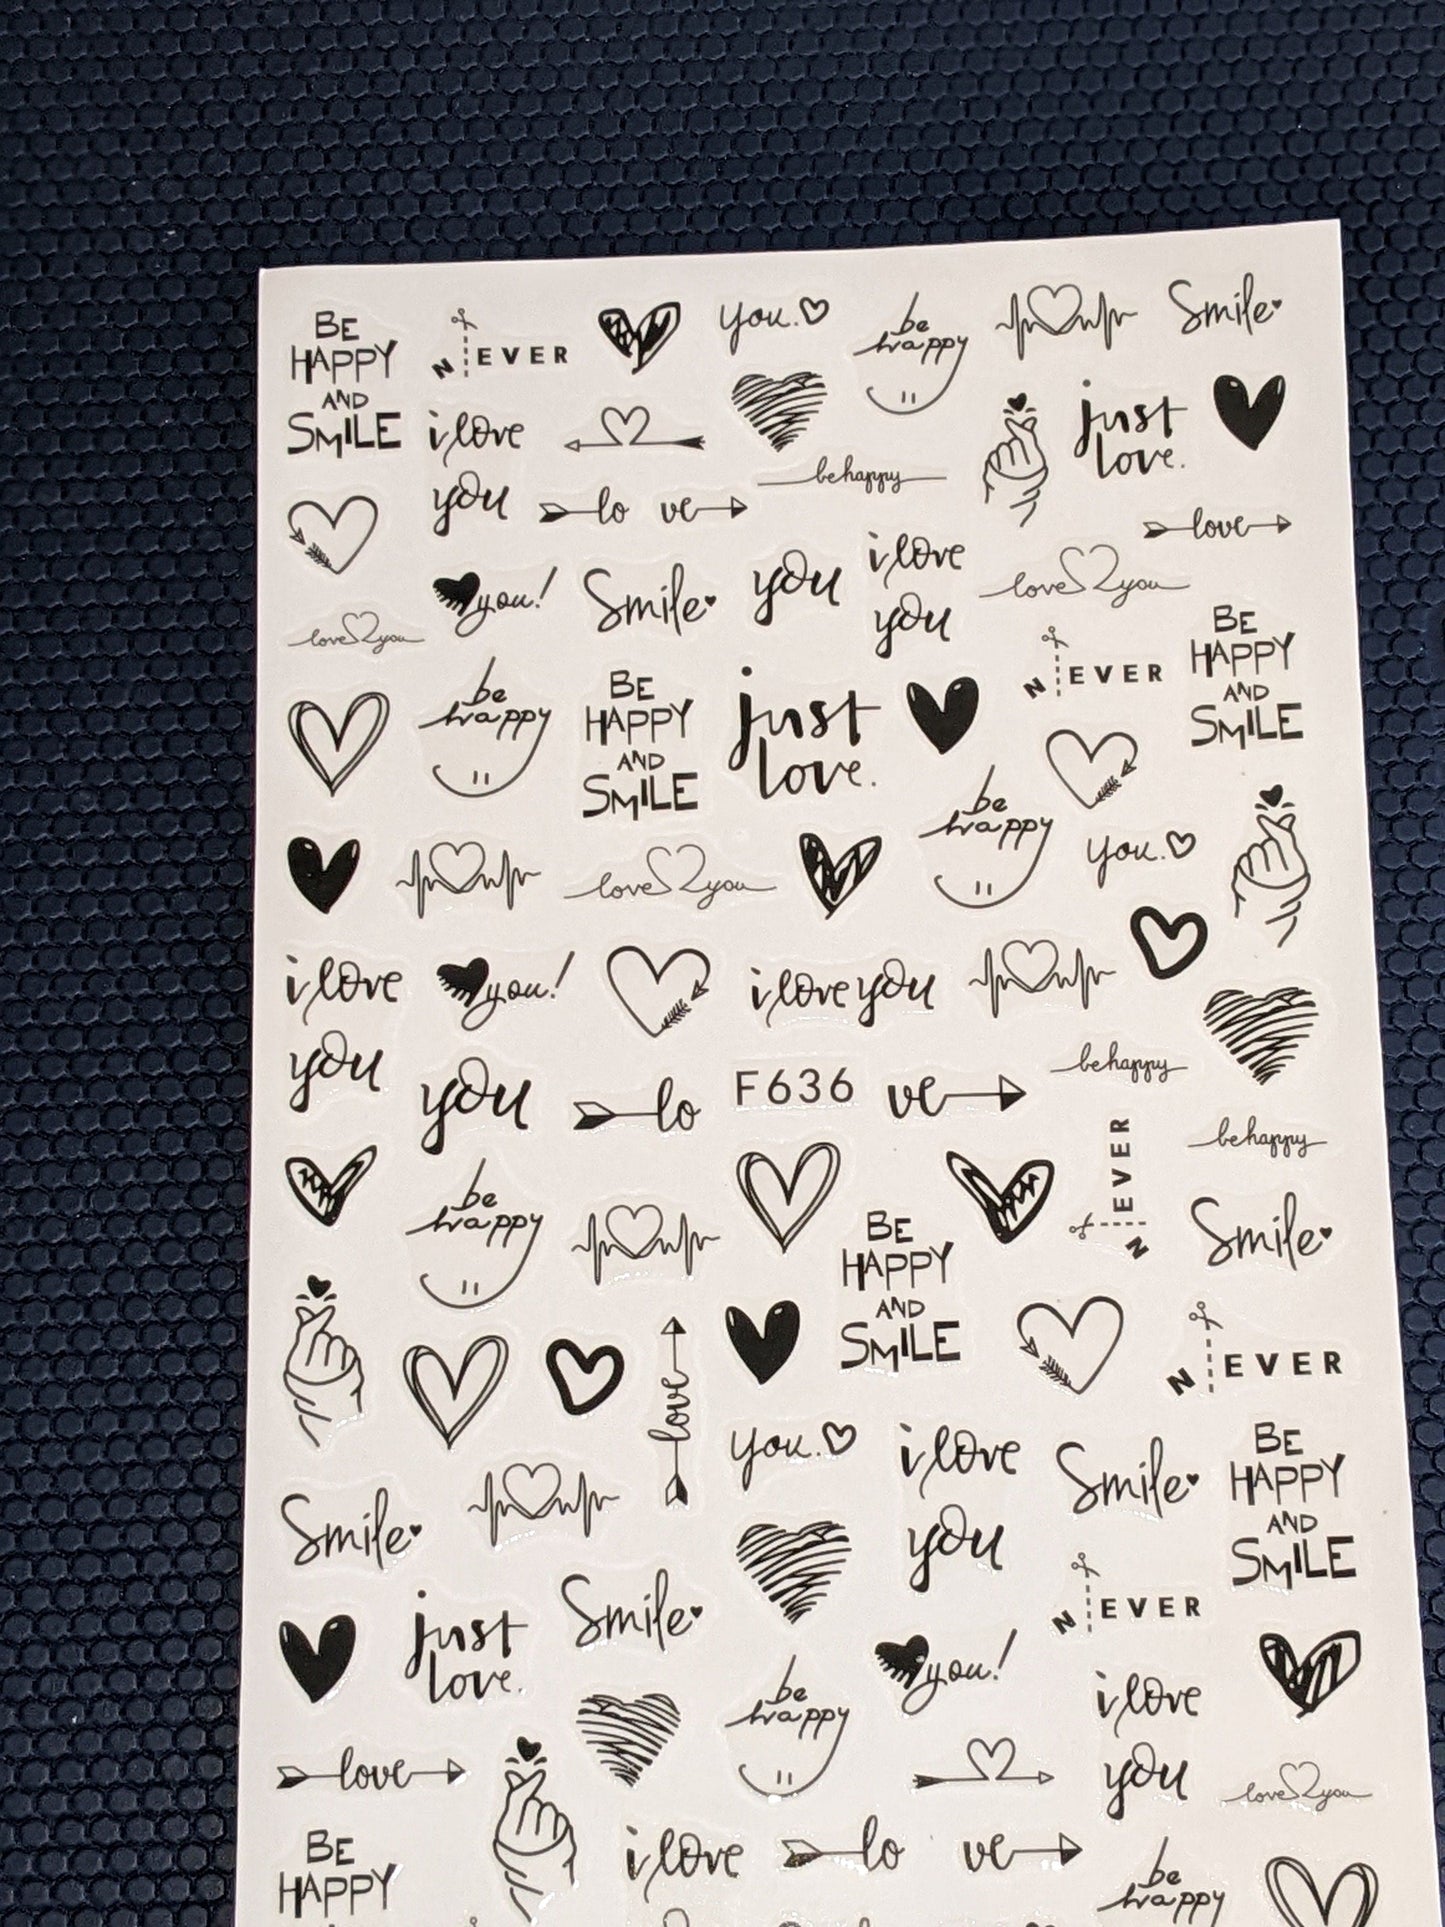 BE
HAPPY
AND
SMILE
N EVER
you.
be
happy
Smile
i love
you
just
love.
behappy
lo ve
love
you!
Smile
you
i love
you
love you
love you
N EVER
BE
HAPPY
AND
SMILE
be
happy
BE
HAPPY
AND
SMILE
just
love.
be
happy
you.
love you
i love
you
you!
i love you
behappy
you
lo
F636
ve
behappy
N EVER
be
happy
BE
HAPPY
AND
SMILE
Smile
N EVER
love
you.
i love
you
Smile
BE
HAPPY
AND
SMILE
Smile
just
love.
Smile
N EVER
you!
be
happy
i love
you
love
love you
BE
HAPPY
i love
lo ve
be
happy